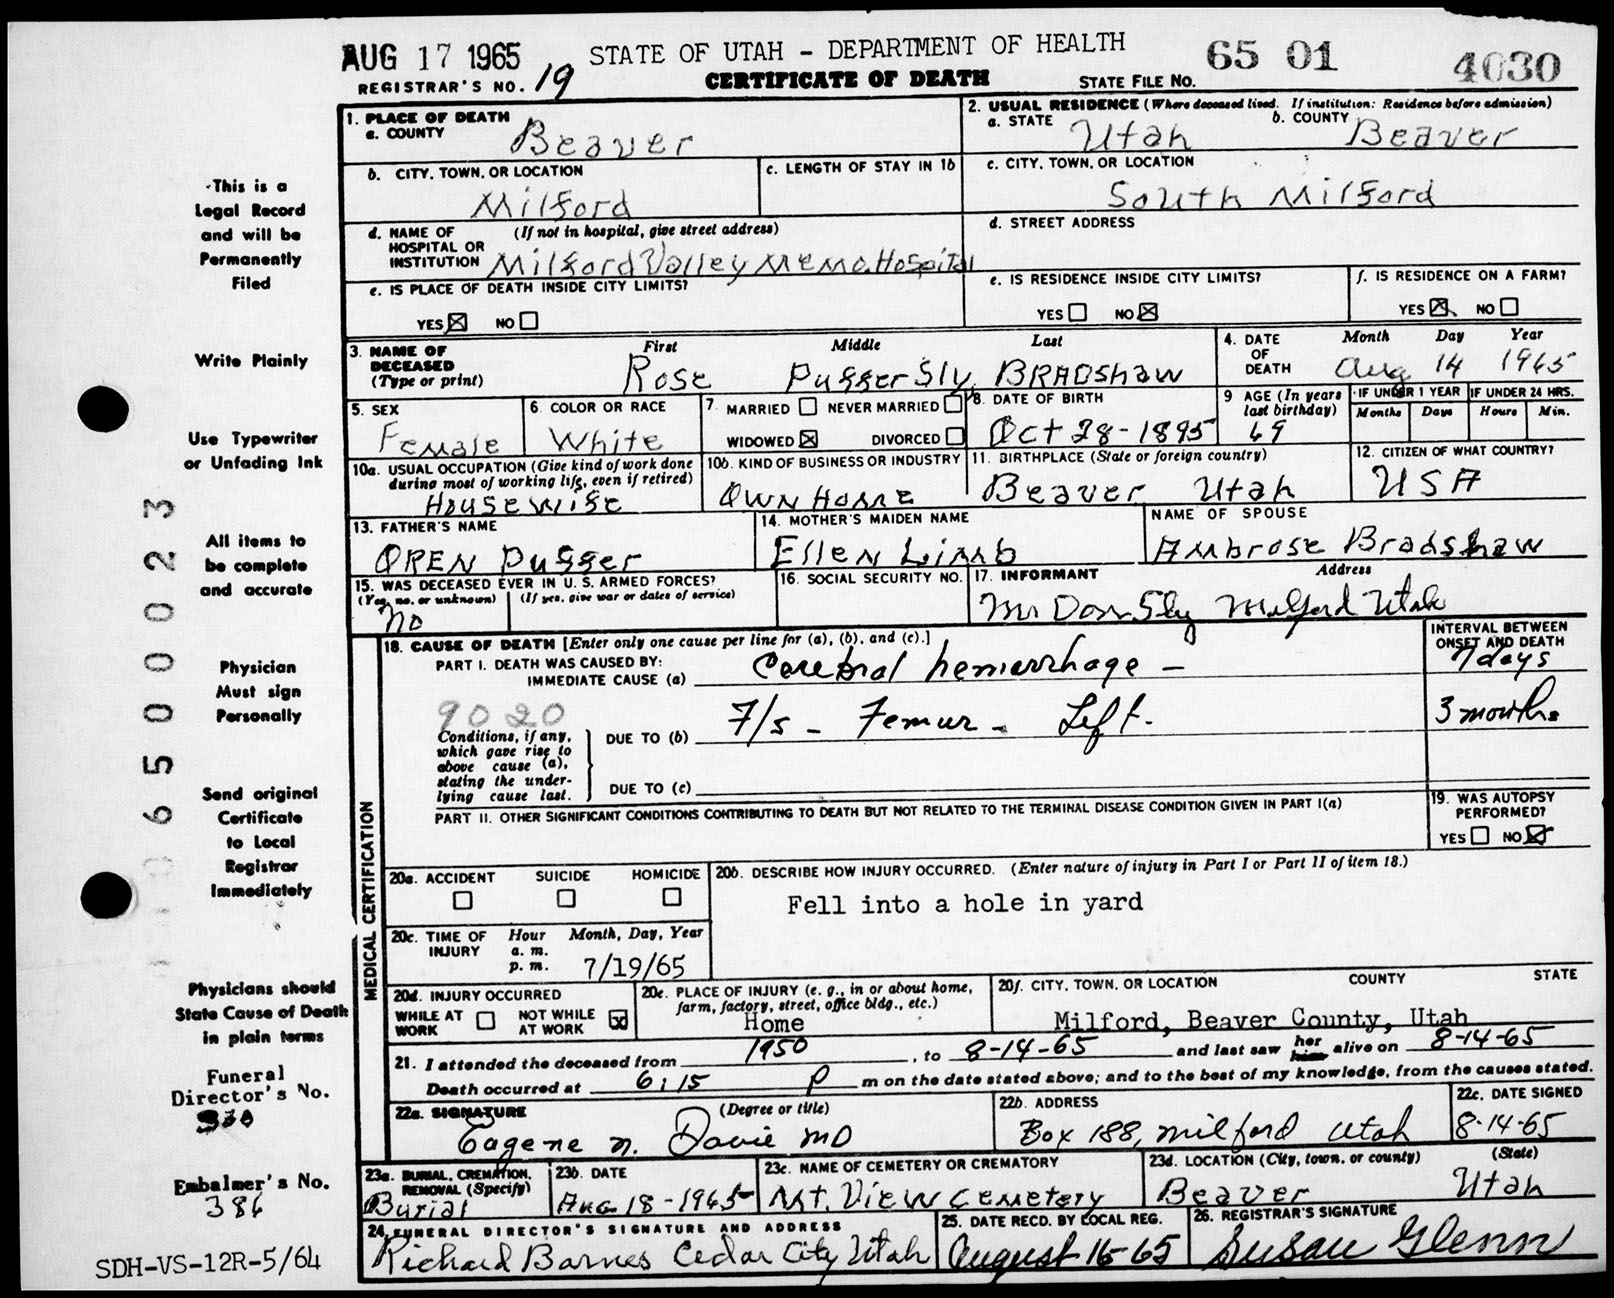 AUG 17 1965 STATE OF UTAH - DEPARTMENT OF HEALTH 65 01 4030
REGISTRAR'S NO. 19 CERTIFICATE OF DEATH STATE FILE NO.
1. PLACE OF DEATH
a. COUNTY Beaver
2. USUAL RESIDENCE (Where deceased lived. If institution: Residence before admission)
a. STATE Utah b. COUNTY Beaver
b. CITY, TOWN, OR LOCATION Milford
c. LENGTH OF STAY IN 1b
c. CITY, TOWN, OR LOCATION South Milford
d. NAME OF HOSPITAL OR INSTITUTION (If not in hospital, give street address)
Milford Valley Memo. Hospital
d. STREET ADDRESS
e. IS PLACE OF DEATH INSIDE CITY LIMITS?
YES ☒ NO ☐
e. IS RESIDENCE INSIDE CITY LIMITS?
YES ☐ NO ☒
f. IS RESIDENCE ON A FARM?
YES ☒ NO ☐
3. NAME OF DECEASED (Type or print)
First Middle Last
Rose Puffer Sly BRADSHAW
4. DATE OF DEATH Month Day Year
Aug 14 1965
5. SEX Female
6. COLOR OR RACE White
7. MARRIED ☐ NEVER MARRIED ☐
WIDOWED ☒ DIVORCED ☐
8. DATE OF BIRTH Oct 28-1895
9 AGE (In years last birthday) 69
IF UNDER 1 YEAR IF UNDER 24 HRS.
Months Days Hours Min.
10a. USUAL OCCUPATION (Give kind of work done during most of working life, even if retired)
Housewife
10b. KIND OF BUSINESS OR INDUSTRY
Own Home
11. BIRTHPLACE (State or foreign country)
Beaver Utah
12. CITIZEN OF WHAT COUNTRY?
USA
13. FATHER'S NAME
OREN Puffer
14. MOTHER'S MAIDEN NAME
Ellen Limb
NAME OF SPOUSE
Ambrose Bradshaw
15. WAS DECEASED EVER IN U. S. ARMED FORCES?
(Yes, no, or unknown) (If yes, give war or dates of service)
No
16. SOCIAL SECURITY NO.
17. INFORMANT Address
Mr Don Sly Milford Utah
18. CAUSE OF DEATH [Enter only one cause per line for (a), (b), and (c).]
INTERVAL BETWEEN ONSET AND DEATH
PART I. DEATH WAS CAUSED BY:
IMMEDIATE CAUSE (a) Cerebral hemorrhage - 7 days
9020
Conditions, if any, which gave rise to above cause (a), stating the underlying cause last.
DUE TO (b) F/s - Femur - Left. 3 months
DUE TO (c)
PART II. OTHER SIGNIFICANT CONDITIONS CONTRIBUTING TO DEATH BUT NOT RELATED TO THE TERMINAL DISEASE CONDITION GIVEN IN PART I(a)
19. WAS AUTOPSY PERFORMED?
YES ☐ NO ☒
MEDICAL CERTIFICATION
20a. ACCIDENT SUICIDE HOMICIDE
☐ ☐ ☐
20b. DESCRIBE HOW INJURY OCCURRED. (Enter nature of injury in Part I or Part II of item 18.)
Fell into a hole in yard
20c. TIME OF INJURY Hour Month, Day, Year
a. m.
p. m. 7/19/65
20d. INJURY OCCURRED
WHILE AT WORK ☐ NOT WHILE AT WORK ☒
20e. PLACE OF INJURY (e. g., in or about home, farm, factory, street, office bldg., etc.)
Home
20f. CITY, TOWN, OR LOCATION COUNTY STATE
Milford, Beaver County, Utah
21. I attended the deceased from 1950, to 8-14-65 and last saw her him alive on 8-14-65
Death occurred at 6:15 P m on the date stated above; and to the best of my knowledge, from the causes stated.
22a. SIGNATURE (Degree or title)
Eugene N. Davie MD
22b. ADDRESS
Box 188, Milford Utah
22c. DATE SIGNED
8-14-65
23a. BURIAL, CREMATION, REMOVAL (Specify)
Burial
23b. DATE
Aug 18-1965
23c. NAME OF CEMETERY OR CREMATORY
Mt. View Cemetery
23d. LOCATION (City, town, or county) (State)
Beaver Utah
24. FUNERAL DIRECTOR'S SIGNATURE AND ADDRESS
Richard Barnes Cedar City Utah
25. DATE RECD. BY LOCAL REG.
August 16-65
26. REGISTRAR'S SIGNATURE
Susan Glenn
This is a
Legal Record
and will be
Permanently
Filed
Write Plainly
Use Typewriter
or Unfading Ink
All items to
be complete
and accurate
Physician
Must sign
Personally
Send original
Certificate
to Local
Registrar
Immediately
Physicians should
State Cause of Death
in plain terms
Funeral
Director's No.
Embalmer's No.
386
SDH-VS-12R-5/64
6500023